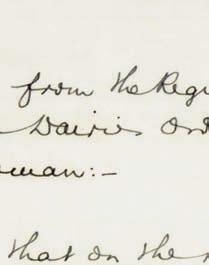 from the Regu
Dairies Ord
eman:-
that on the